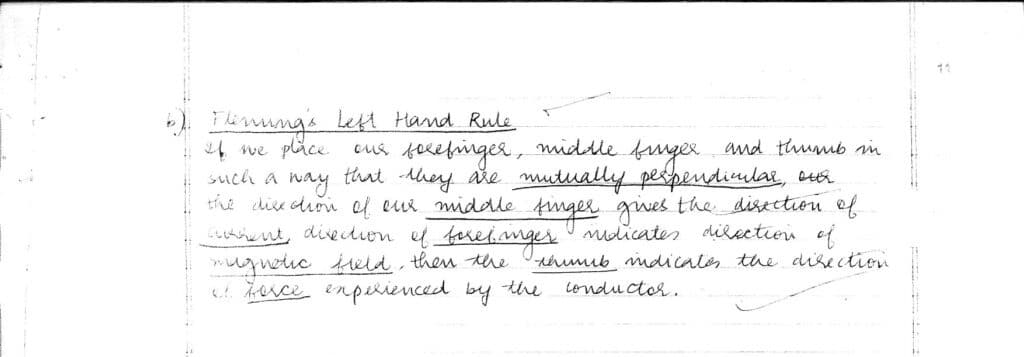 11
b) Fleming's Left Hand Rule
If we place our forefinger, middle finger and thumb in
such a way that they are mutually perpendicular, our
the direction of our middle finger gives the direction of
current, direction of forefinger indicates direction of
magnetic field, then the thumb indicates the direction
of force experienced by the conductor.